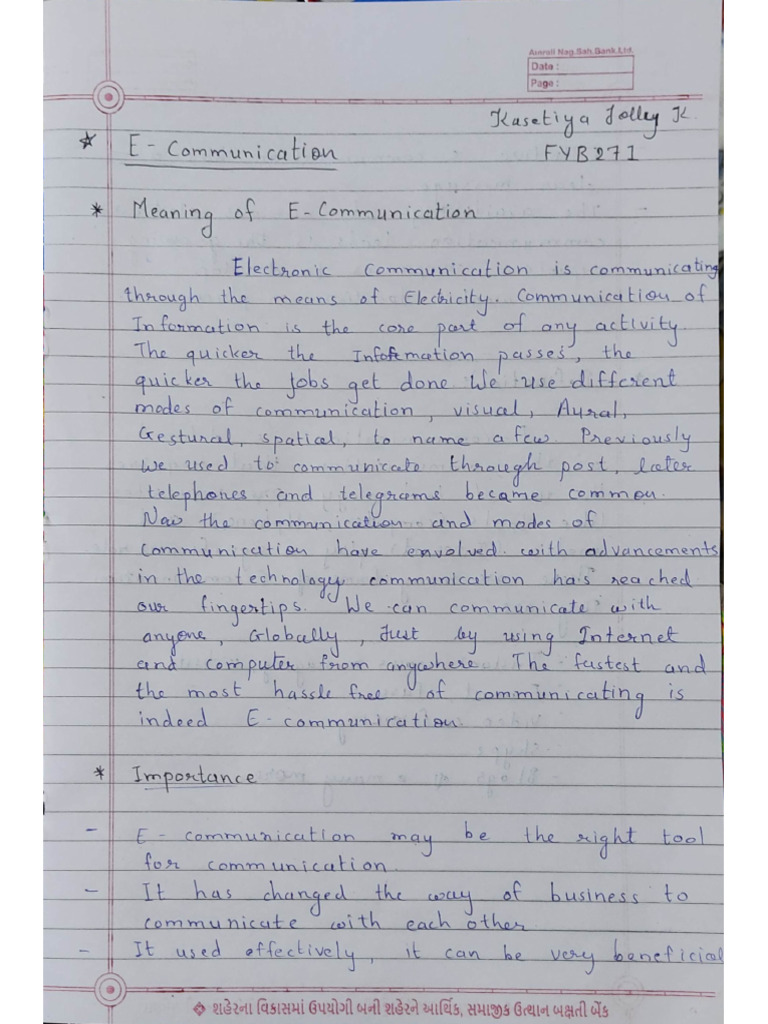 Amreli Nag. Sah. Bank. Ltd.
Date :
Page :
Kasetiya Jolley K.
FYB271
* E - Communication
* Meaning of E - Communication
Electronic communication is communicating
through the means of Electricity. Communication of
Information is the core part of any activity.
The quicker the Information passes, the
quicker the jobs get done We use different
modes of communication, visual, Aural,
Gestural, spatial, to name a few. Previously
we used to communicate through post, later
telephones and telegrams became common.
Now the communication and modes of
communication have envolved. with advancements
in the technology communication has reached
our fingertips. We can communicate with
anyone, Globally, Just by using Internet
and computer from anywhere. The fastest and
the most hassle free of communicating is
indeed E - communication.
* Importance
- E - communication may be the right tool
for communication.
- It has changed the way of business to
communicate with each other
- It used effectively, it can be very beneficial
શહેરના વિકાસમાં ઉપયોગી બની શહેરને આર્થિક, સમાજીક ઉત્થાન બક્ષતી બેંક